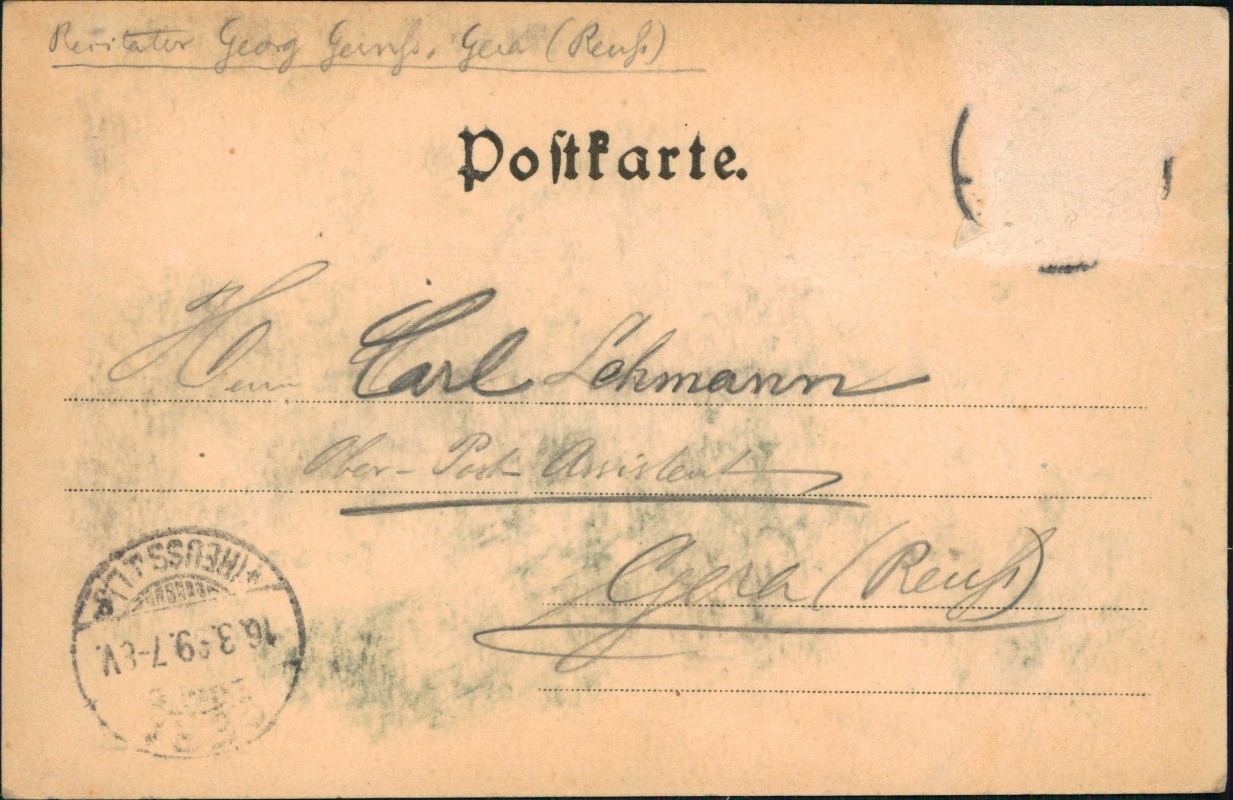 Recitator Georg Gernß, Gera (Reuß)
Postkarte.
Herrn Carl Lehmann
Ober-Post-Assistent
Gera (Reuß)
*(REUSS j.L.)
16.3.99.7-8V.
GERA